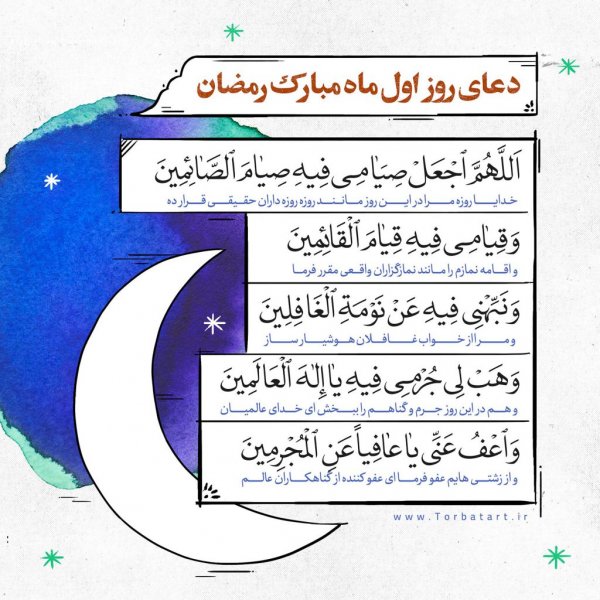 دعای روز اول ماه مبارک رمضان
اَللَّهُمَّ ٱجْعَلْ صِيَامِى فِيهِ صِيَامَ ٱلصَّائِمِينَ
خدایا روزه مرا در این روز مانند روزه روزه داران حقیقی قرار ده
وَ قِيَامِى فِيهِ قِيَامَ ٱلْقَائِمِينَ
و اقامه نمازم را مانند نمازگزاران واقعی مقرر فرما
وَ نَبِّهْنِى فِيهِ عَنْ نَوْمَةِ ٱلْغَافِلِينَ
و مرا از خواب غافلان هوشیار ساز
وَ هَبْ لِى جُرْمِى فِيهِ يَا إِلٰهَ ٱلْعَالَمِينَ
و هم در این روز جرم و گناهم را ببخش ای خدای عالمیان
وَ ٱعْفُ عَنِّى يَا عَافِياً عَنِ ٱلْمُجْرِمِينَ
و از زشتی هایم عفو فرما ای عفو کننده از گناهکاران عالم
www.Torbatart.ir